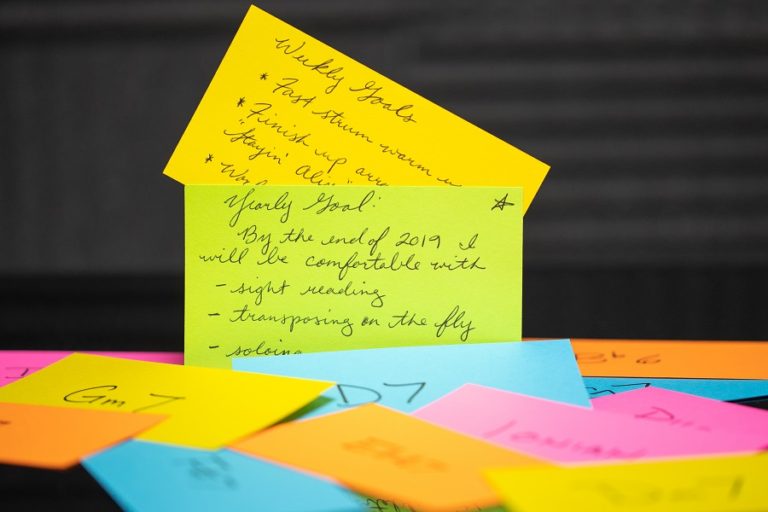 Weekly Goals
* Fast strum warm u
* Finish up arra
"Stayin' Aliv"
* Wor
Yearly Goal: ☆
By the end of 2019 I
will be comfortable with
- sight reading
- transposing on the fly
- soloing
Gm7
D7
Ionian